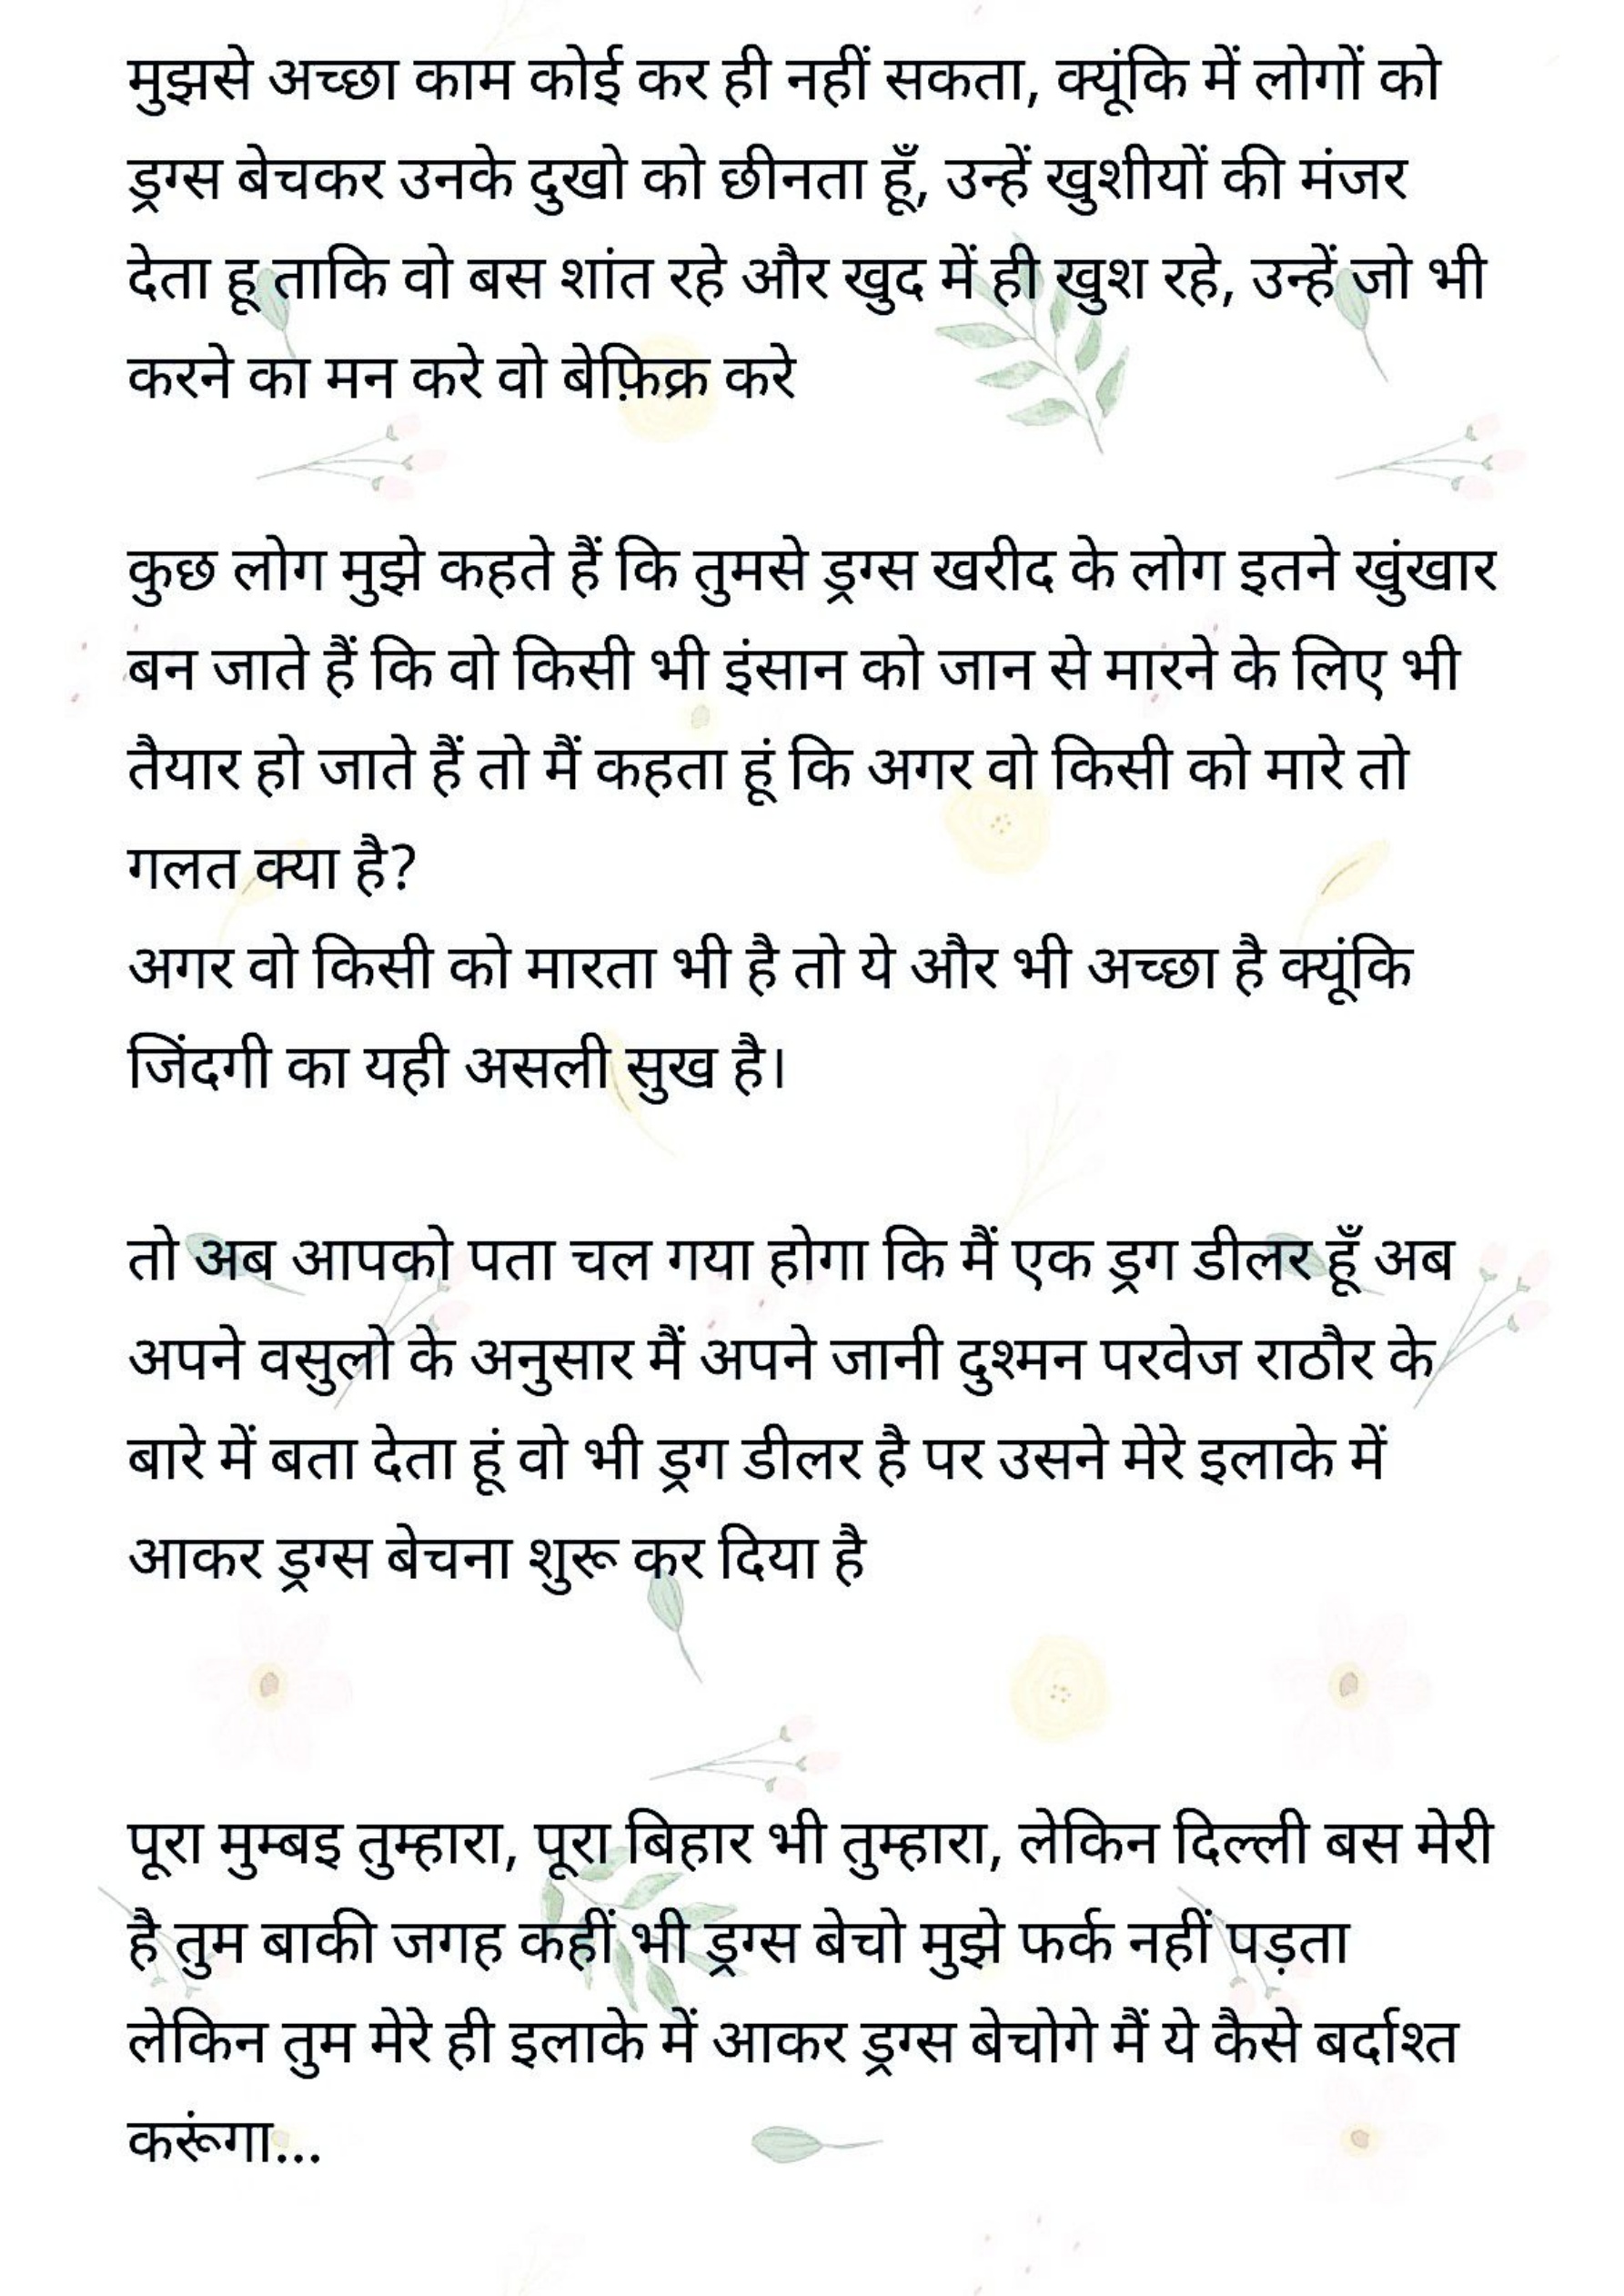 मुझसे अच्छा काम कोई कर ही नहीं सकता, क्यूंकि में लोगों को
ड्रग्स बेचकर उनके दुखो को छीनता हूँ, उन्हें खुशीयों की मंजर
देता हू ताकि वो बस शांत रहे और खुद में ही खुश रहे, उन्हें जो भी
करने का मन करे वो बेफ़िक्र करे
कुछ लोग मुझे कहते हैं कि तुमसे ड्रग्स खरीद के लोग इतने खुंखार
बन जाते हैं कि वो किसी भी इंसान को जान से मारने के लिए भी
तैयार हो जाते हैं तो मैं कहता हूं कि अगर वो किसी को मारे तो
गलत क्या है?
अगर वो किसी को मारता भी है तो ये और भी अच्छा है क्यूंकि
जिंदगी का यही असली सुख है।
तो अब आपको पता चल गया होगा कि मैं एक ड्रग डीलर हूँ अब
अपने वसुलो के अनुसार मैं अपने जानी दुश्मन परवेज राठौर के
बारे में बता देता हूं वो भी ड्रग डीलर है पर उसने मेरे इलाके में
आकर ड्रग्स बेचना शुरू कर दिया है
पूरा मुम्बइ तुम्हारा, पूरा बिहार भी तुम्हारा, लेकिन दिल्ली बस मेरी
है तुम बाकी जगह कहीं भी ड्रग्स बेचो मुझे फर्क नहीं पड़ता
लेकिन तुम मेरे ही इलाके में आकर ड्रग्स बेचोगे मैं ये कैसे बर्दाश्त
करूंगा...